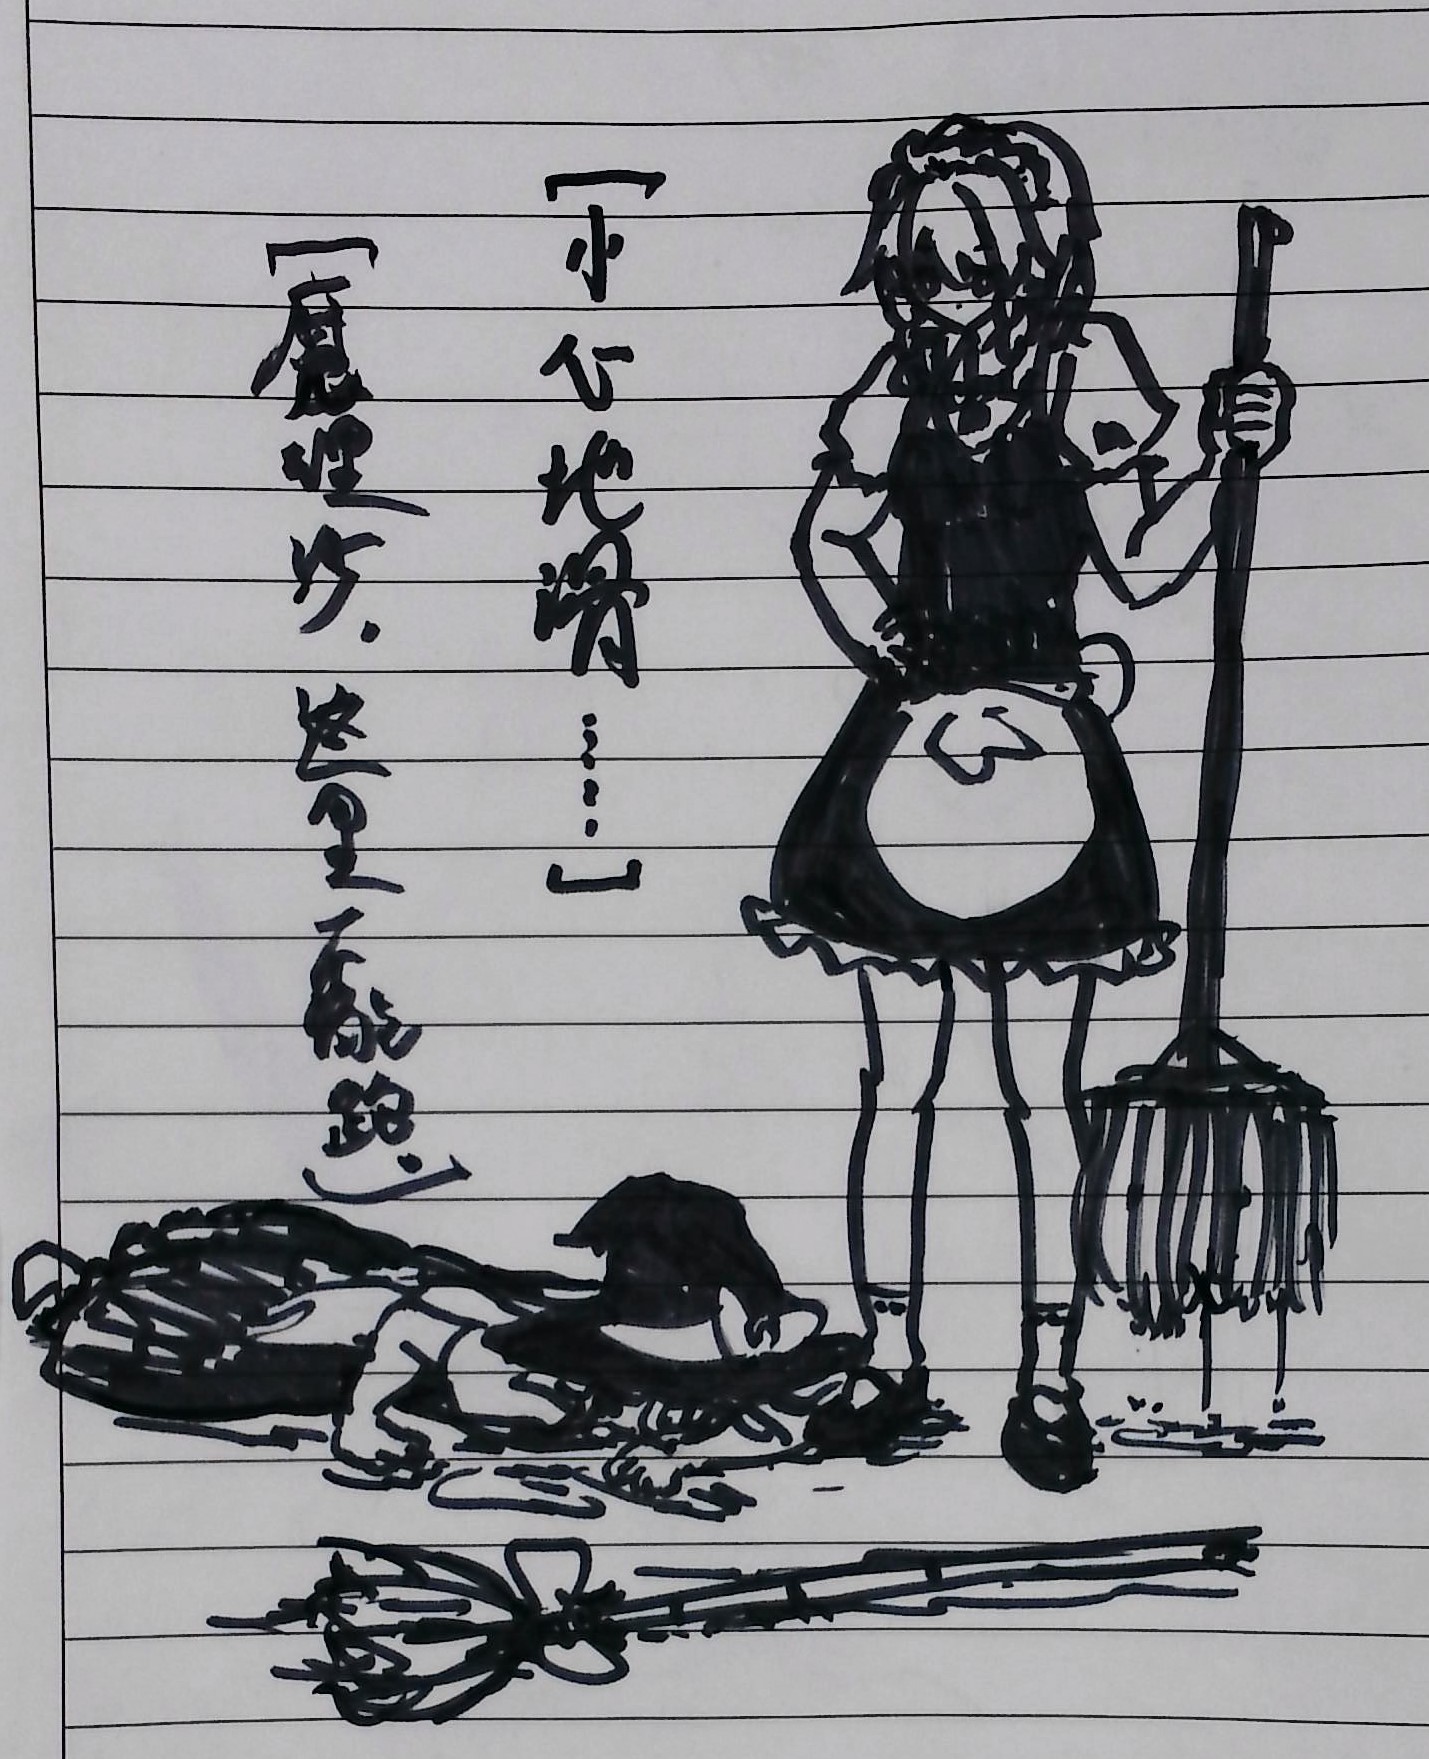 「小心地滑……」
「魔理沙.这里不能跑.」